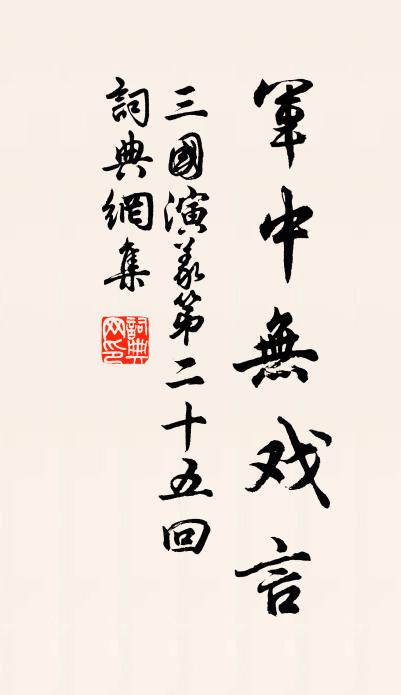 軍中無戏言
三國演義第二十五回
詞典網集
詞典网印